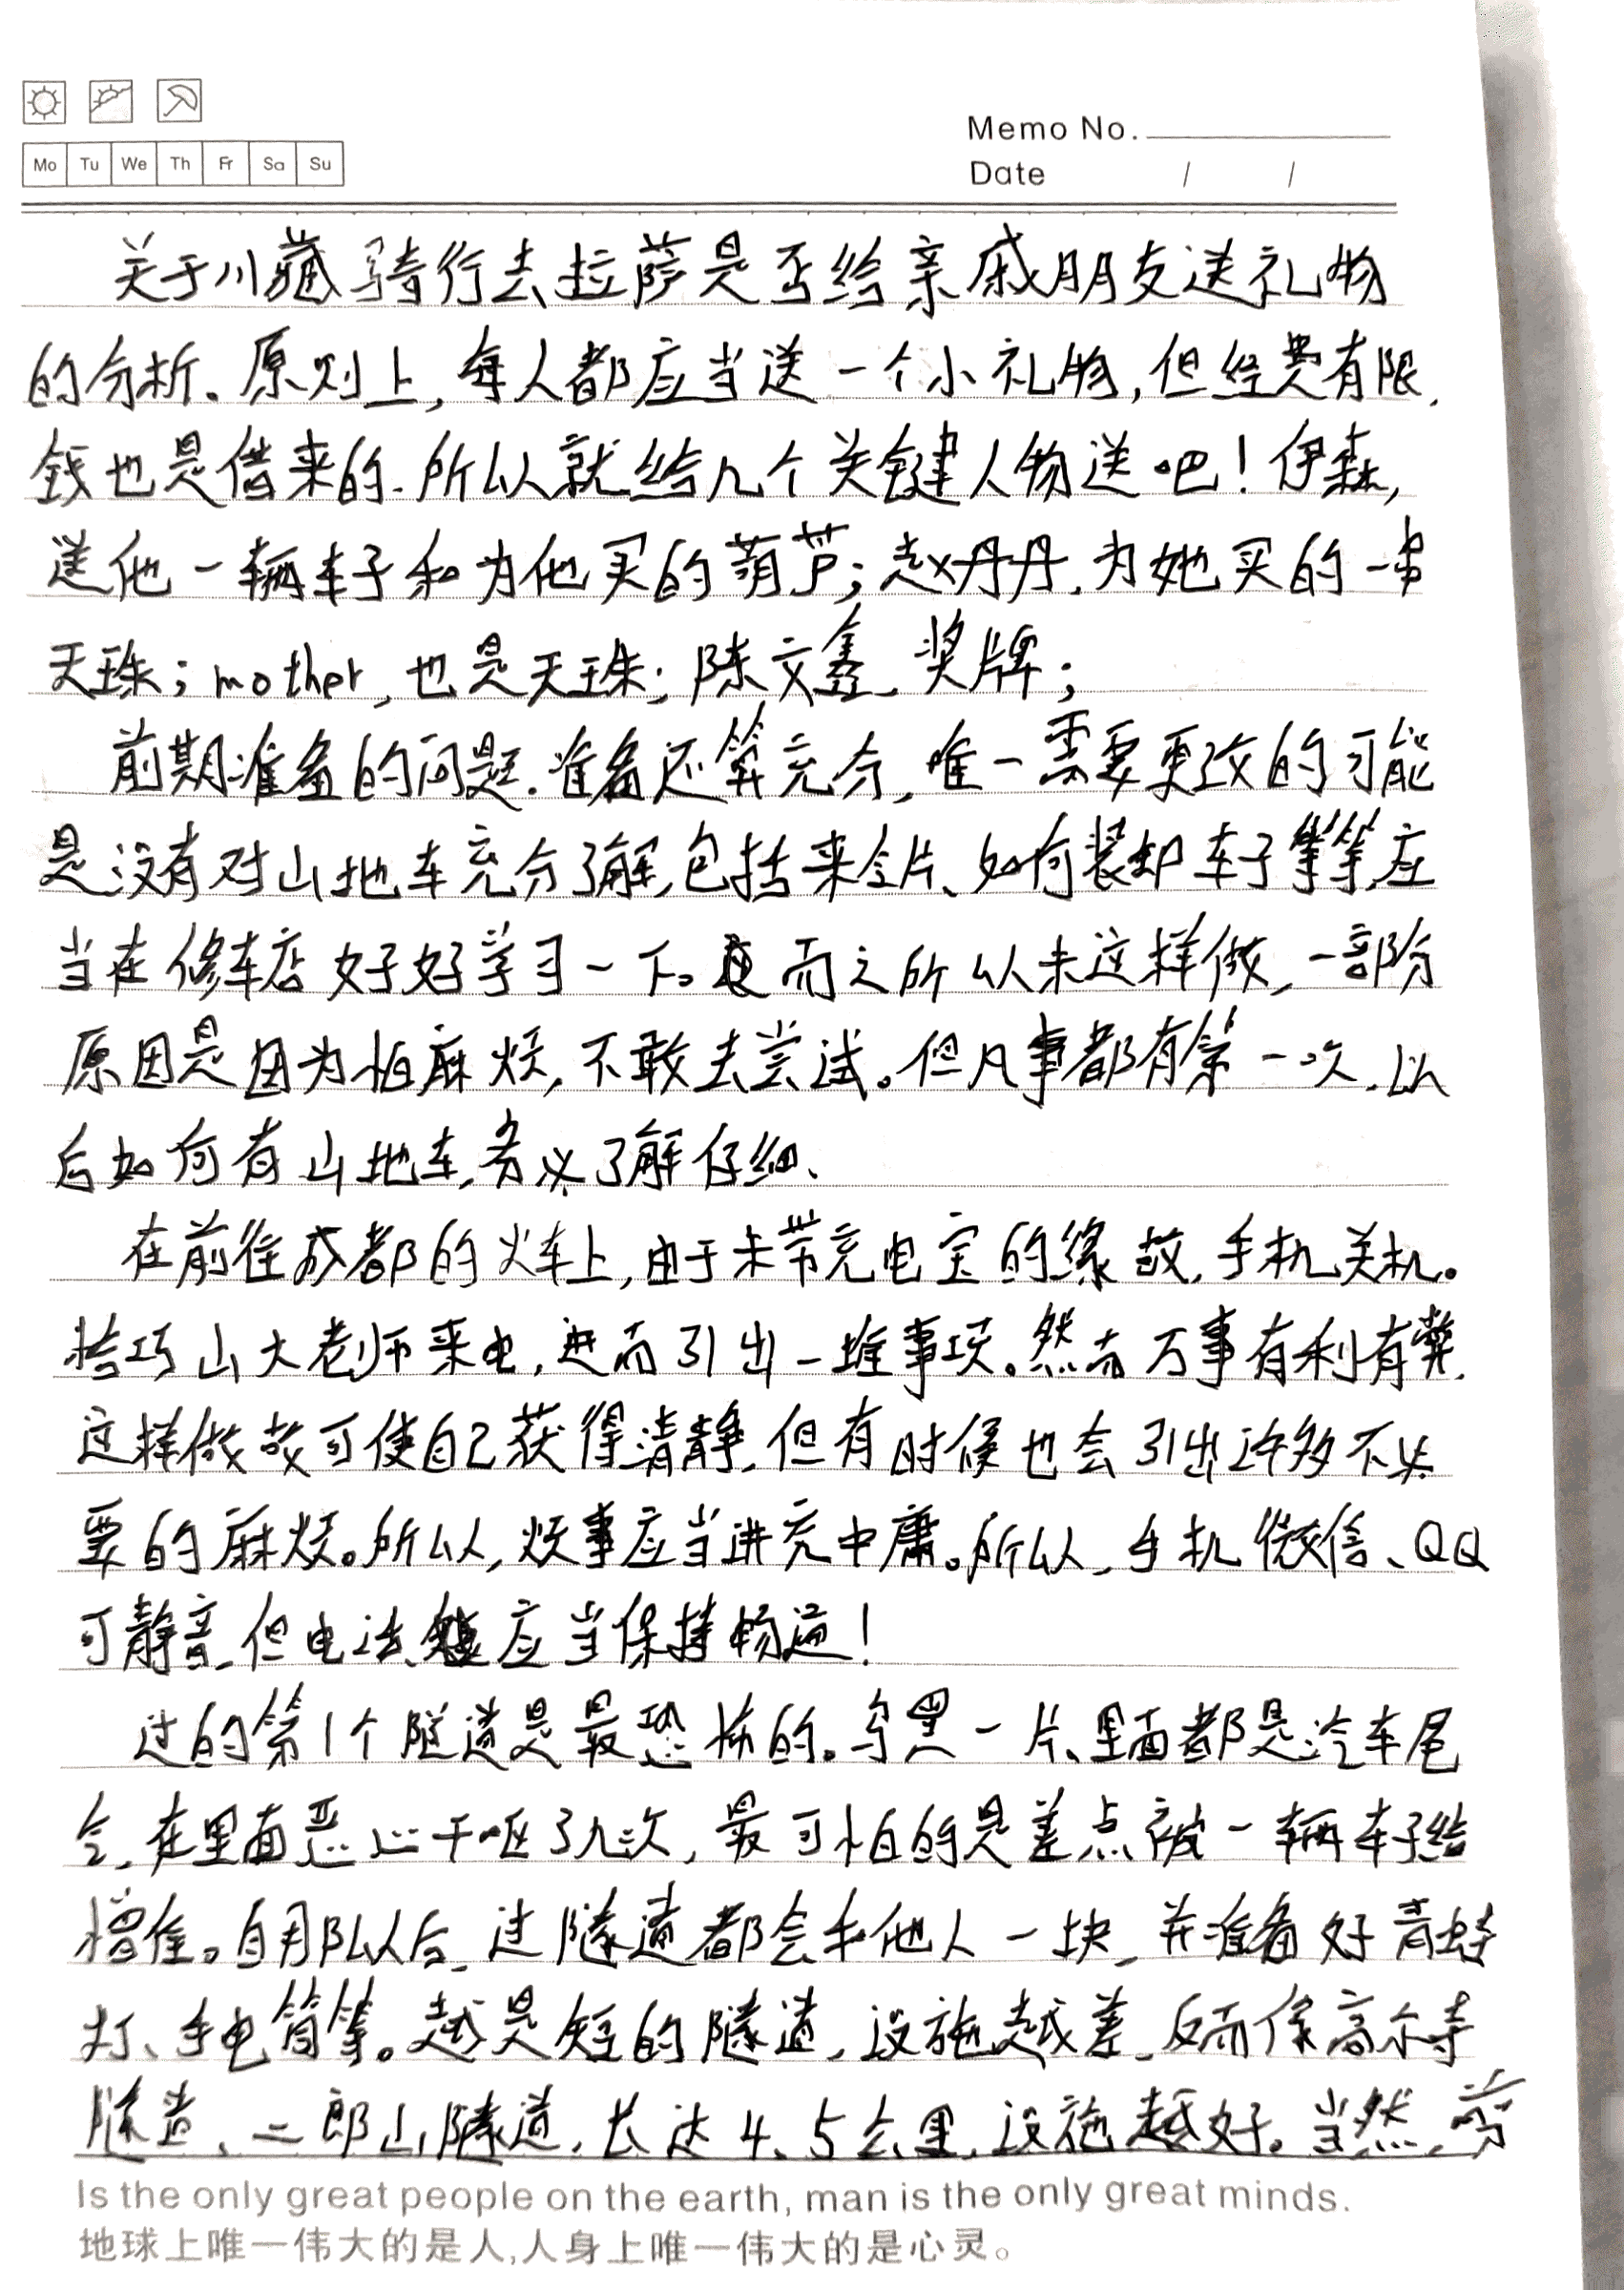 Memo No.
Mo Tu We Th Fr Sa Su
Date / /
关于川藏骑行去拉萨是否给亲戚朋友送礼物
的分析。原则上,每人都应当送一个小礼物,但经费有限,
钱也是借来的.所以就给几个关键人物送吧!伊森,
送他一辆车子和为他买的葫芦;赵丹丹,为她买的一串
天珠;mother,也是天珠;陈文鑫,奖牌;
前期准备的问题.准备还算充分,唯一需要更改的可能
是没有对山地车充分了解,包括来令片、如何装卸车子等等,应
当在修车店好好学习一下。而之所以未这样做,一部分
原因是因为怕麻烦,不敢去尝试。但凡事都有第一次.以
后如何有山地车,务必了解仔细、
在前往成都的火车上,由于未带充电宝的缘故,手机关机。
恰巧山大老师来电,进而引出一堆事项。然而万事有利有弊,
这样做故可使自己获得清静,但有时候也会引出许多不必
要的麻烦。所以,烦事应当进充中庸。所以,手机微信、QQ
可静音,但电话应当保持畅通!
过的第1个隧道是最恐怖的。乌黑一片、里面都是汽车尾
气,在里面恶心干呕了几次,最可怕的是差点被一辆车子给
撞住。自那以后,过隧道都会和他人一块,并准备好青蛙
灯、手电筒等。越是短的隧道,设施越差,反而像高尔寺
隧道、二郎山隧道,长达4、5公里,设施越好。当然,
Is the only great people on the earth, man is the only great minds.
地球上唯一伟大的是人,人身上唯一伟大的是心灵。